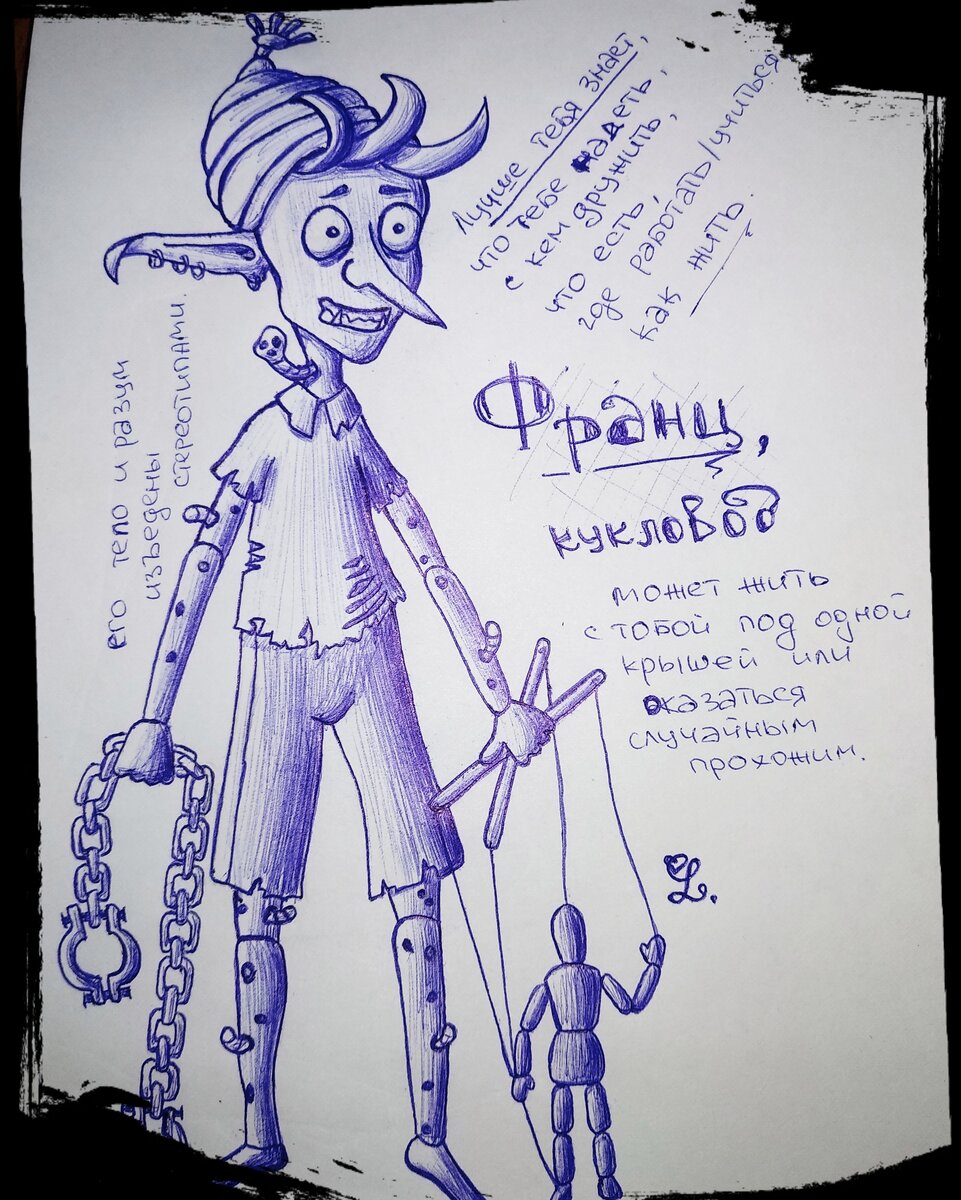 Лучше тебя знает,
что тебе надеть,
с кем дружить,
что есть,
где работать/учиться,
как жить.
его тело и разум
изъедены
стереотипами.
Франц,
кукловод
может жить
с тобой под одной
крышей или
оказаться
случайным
прохожим.
L.